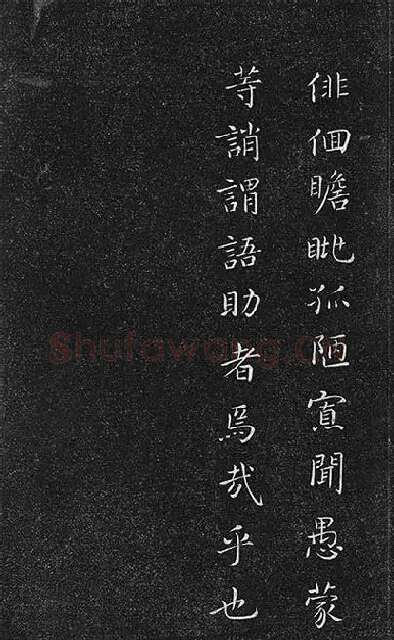 俳佪瞻眺孤陋寡聞愚蒙
等誚謂語助者焉哉乎也
Shufawang.cn